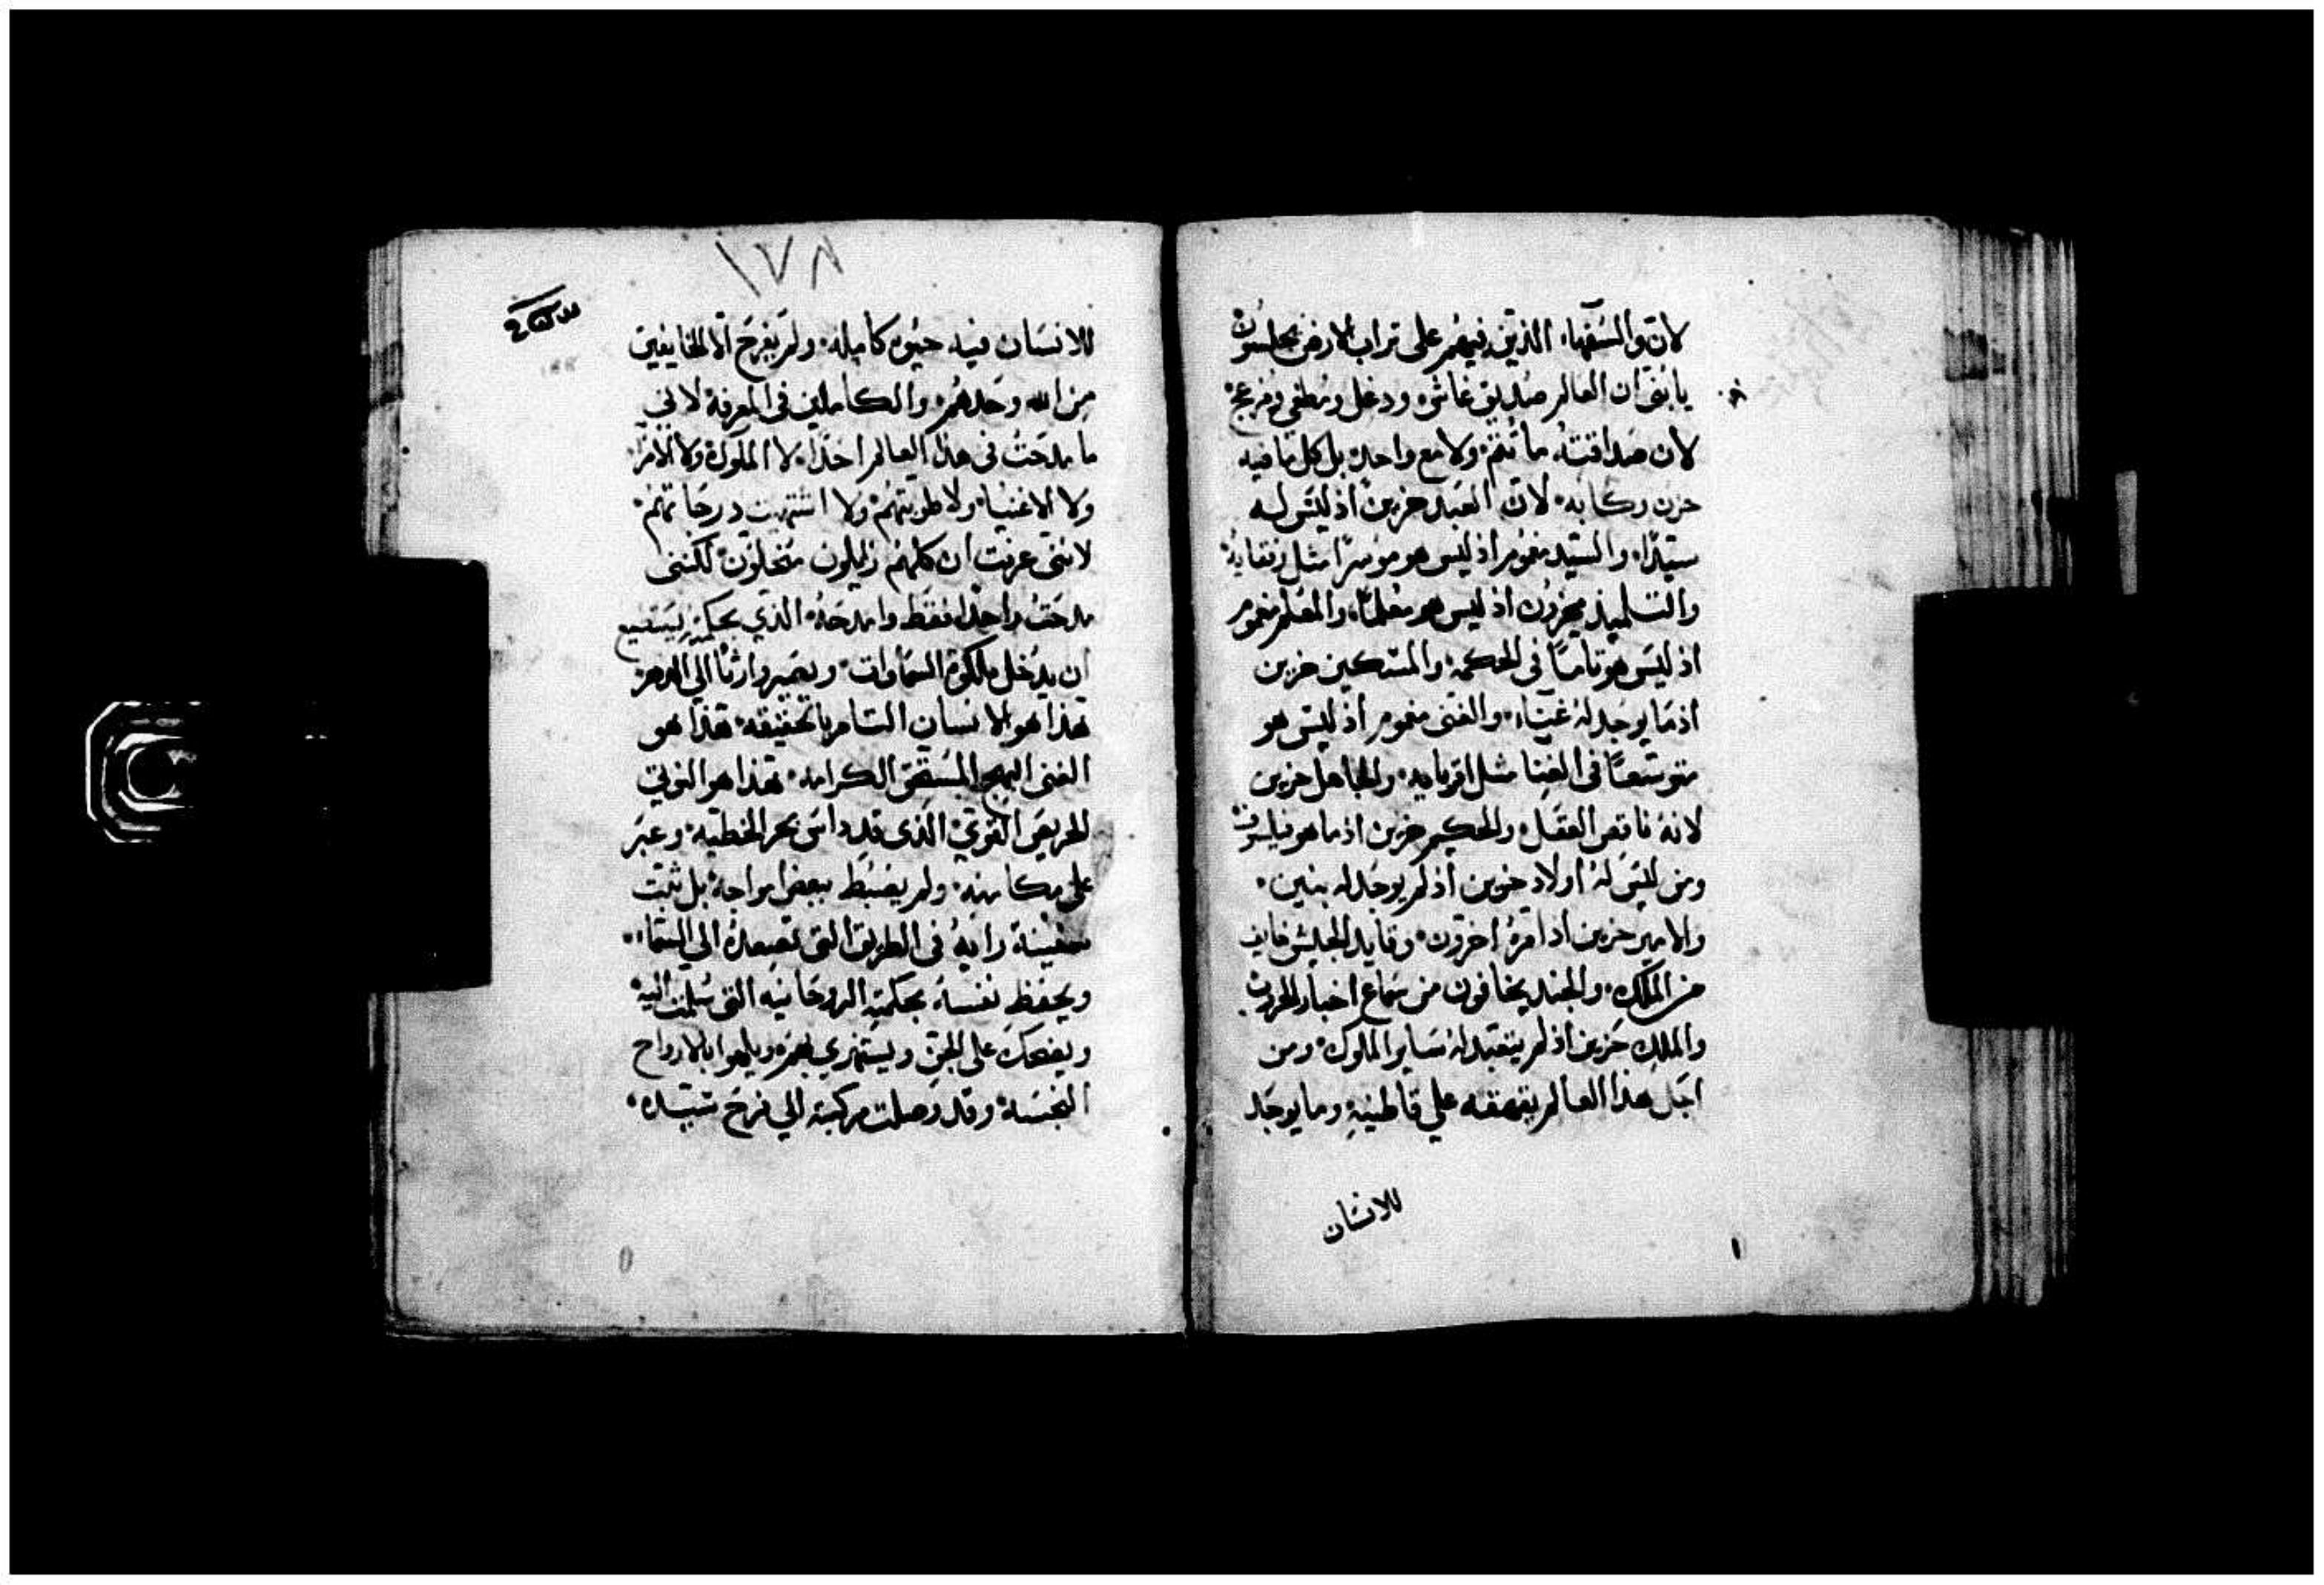 لان والسفهاء الذين فيهم على تراب الارض يجلسون
يا ابني ان العالم صديق غاش ودغل ومطغي ومزعج
لان صداقته ما تتم ولا مع واحد بل كل ما فيه
حزن وكابه لان العبد حزين اذ ليس له
سيدا والسيد مغموم اذ ليس هو موسرا مثل رفقايه
والتلميذ محزون اذ ليس هو معلما والمعلم مغموم
اذ ليس هو تاما في الحكمة والمسكين حزين
اذ ما يوجد له غناء والغني مغموم اذ ليس هو
متوسعا في الغنا مثل اقربايه والجاهل حزين
لانه ناقص العقل والحكيم حزين اذ ما هو فيلسوف
ومن ليس له اولاد حزين اذ لم يوجد له بنين
والامير حزين اذ امره اخرون وقايد الجيش خايف
من الملك والجند يخافون من سماع اخبار الحروب
والملك حزين اذ لم يتعبد له ساير الملوك ومن
اجل هذا العالم يقهقه علي قاطنيه وما يوجد
للانسان
١٧٨
للانسان فيه حيوه كامله ولم يفرح الا الخايفين
من الله وحدهم والكاملين في المعرفة لانني
ما مدحت في هذا العالم احدا لا الملوك ولا الامرا
ولا الاغنيا ولا طوبتهم ولا اشتهيت درجاتهم
لانني عرفت ان كلهم زايلون منحلون لكنني
مدحت واحدا فقط وامدحه الذي بحكمة يستطيع
ان يدخل ملكوة السماوات ويصير وارثا الي الدهر
هذا هو الانسان التام بالحقيقه هذا هو
الغني البهج المستحق الكرامه هذا هو النوتي
الحريص القوي الذي قد داس بحر الخطيه وعبر
على مكامنه ولم يضبط ببعض امواجه بل ثبت
سفينة رايه في الطريق التي تصعده الي السماء
ويحفظ نفسه بحكمته الروحانيه التي سلمت اليه
ويضحك على الجن ويستهزي بهم ويلهوا بالارواح
النجسه وقد وصلت مركبته الي فرح سيده